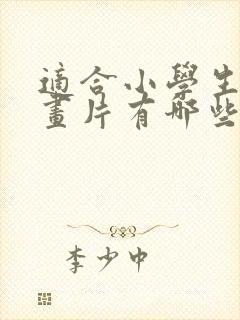 適合小學生
畫片有哪些
李少中